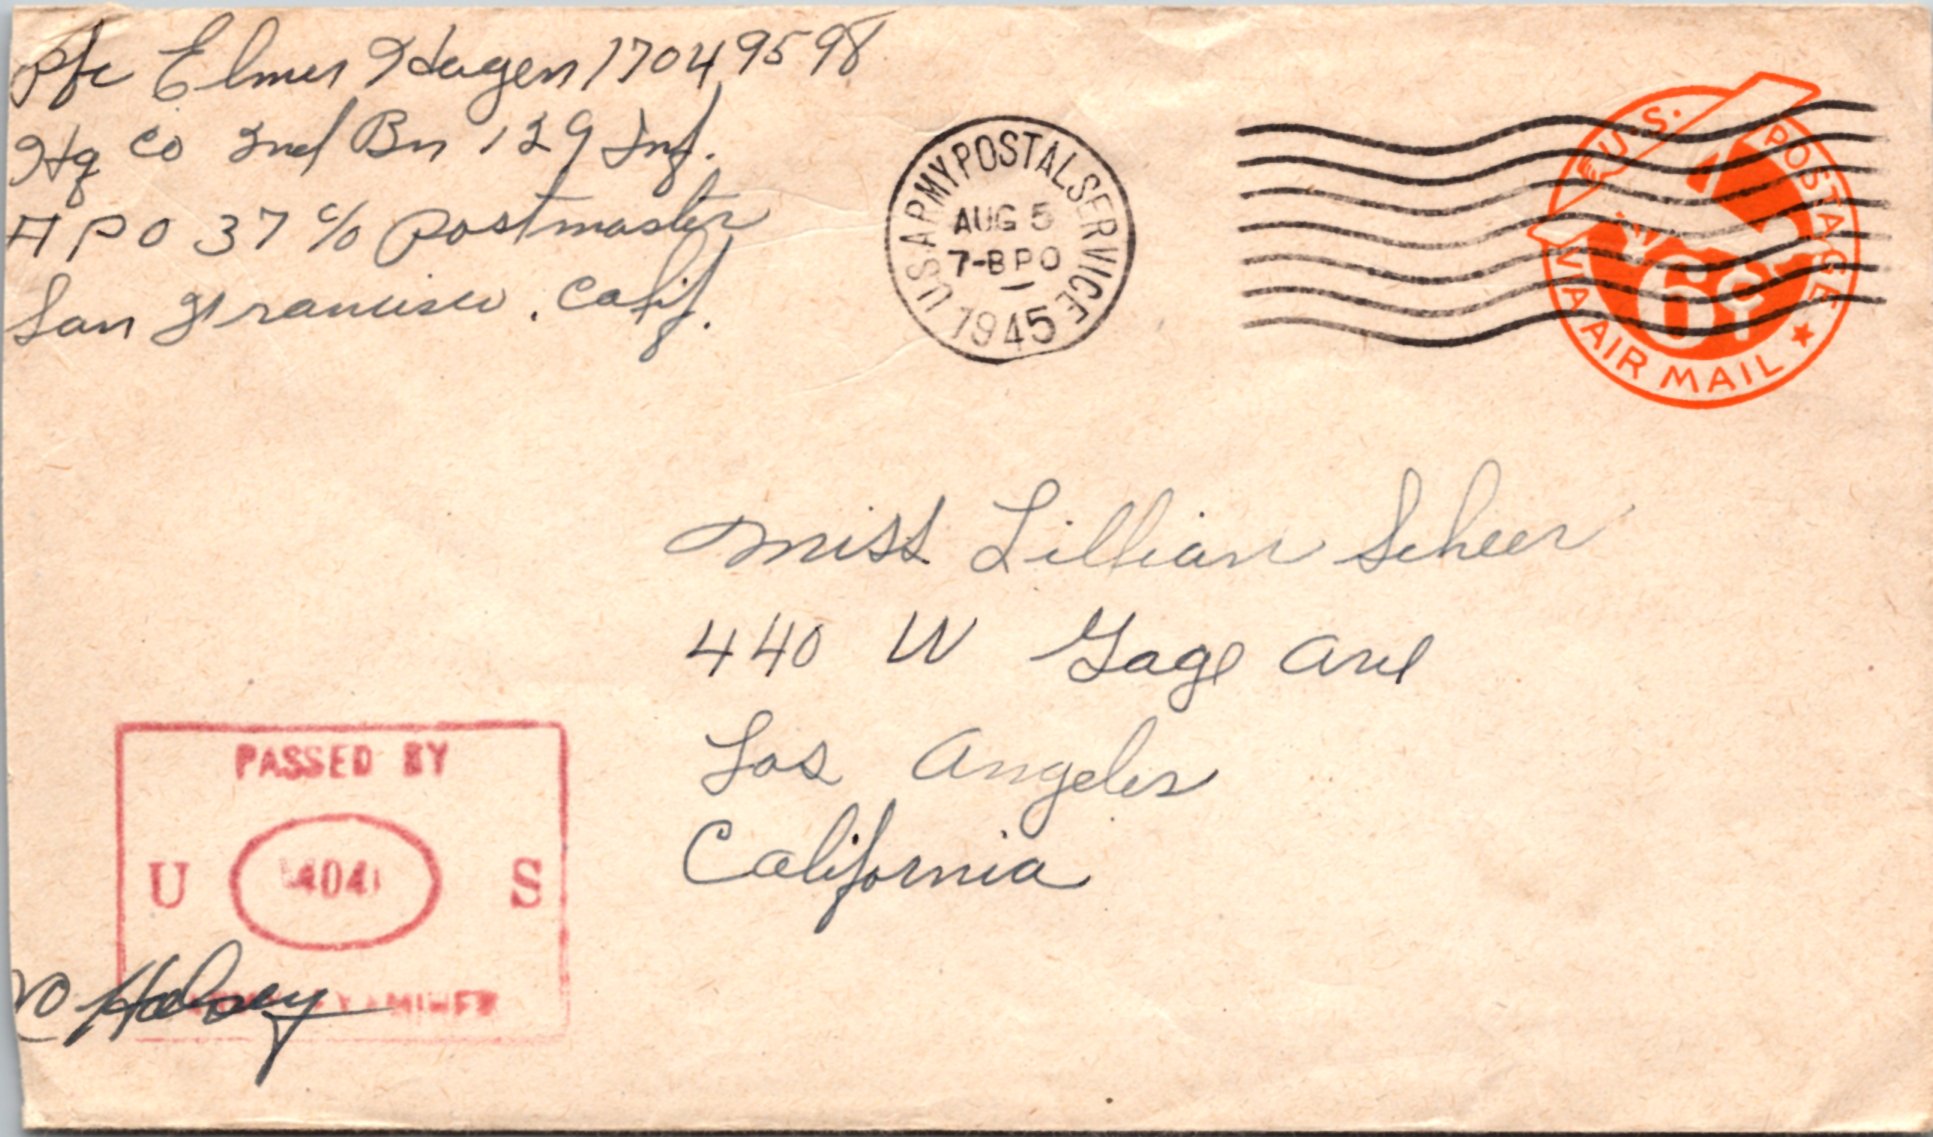 Pfc Elmer Hagen 17049598
Hq Co 2nd Bn 129 Inf.
A P O 37 c/o Postmaster
San Francisco, Calif.
U.S. ARMY POSTAL SERVICE
AUG 5
7-B P O
1945
U.S. POSTAGE
6¢
VIA AIR MAIL
Miss Lillian Scheer
440 W Gage Ave
Los Angeles
California
PASSED BY
U S